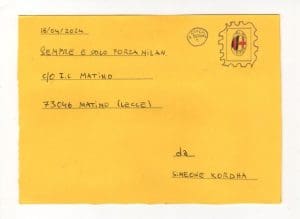 18/04/2024
SEMPRE E SOLO FORZA MILAN
C/O I.C MATINO
73046 MATINO (LECCE)
da
SIMEONE KORDHA